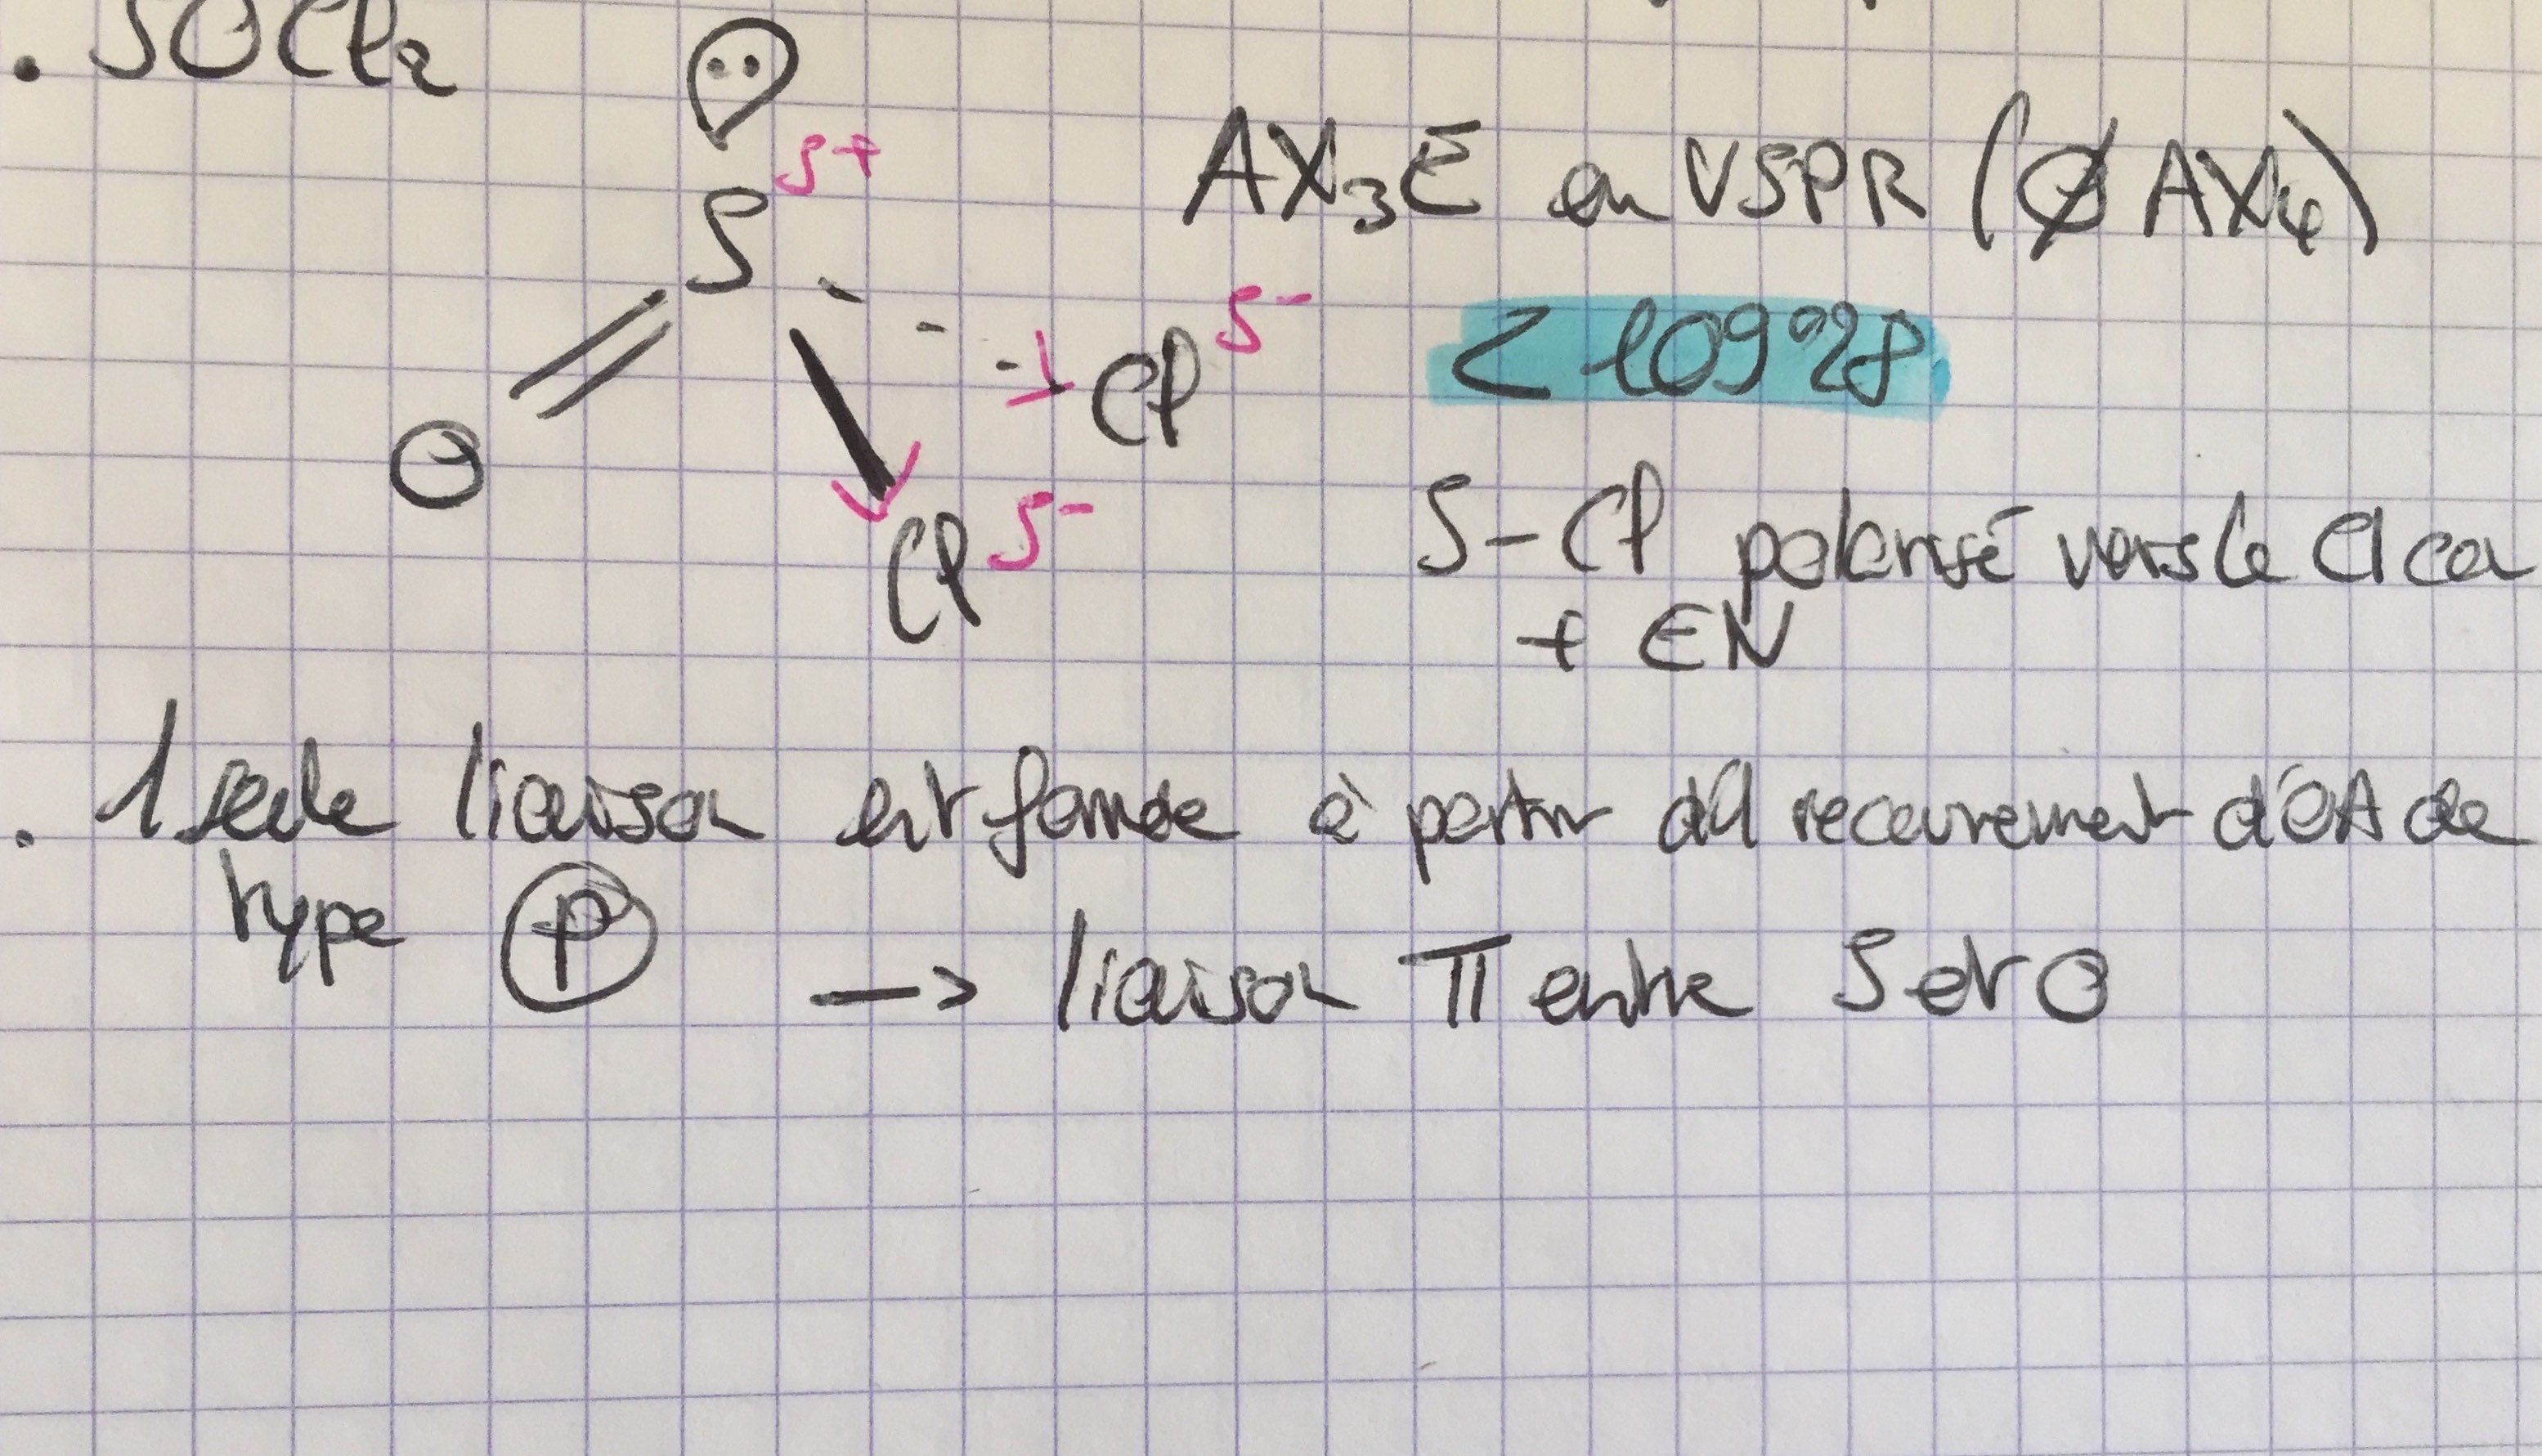 . SOCl2
δ+
S
AX3E en VSPR (Ø AX4)
Cl δ-
< 109°28
O
Cl δ-
S-Cl polarisé vers le Cl car
+ EN
. 1 seule liaison est formée à partir du recouvrement d'OA de
type p
-> liaison π entre S et O